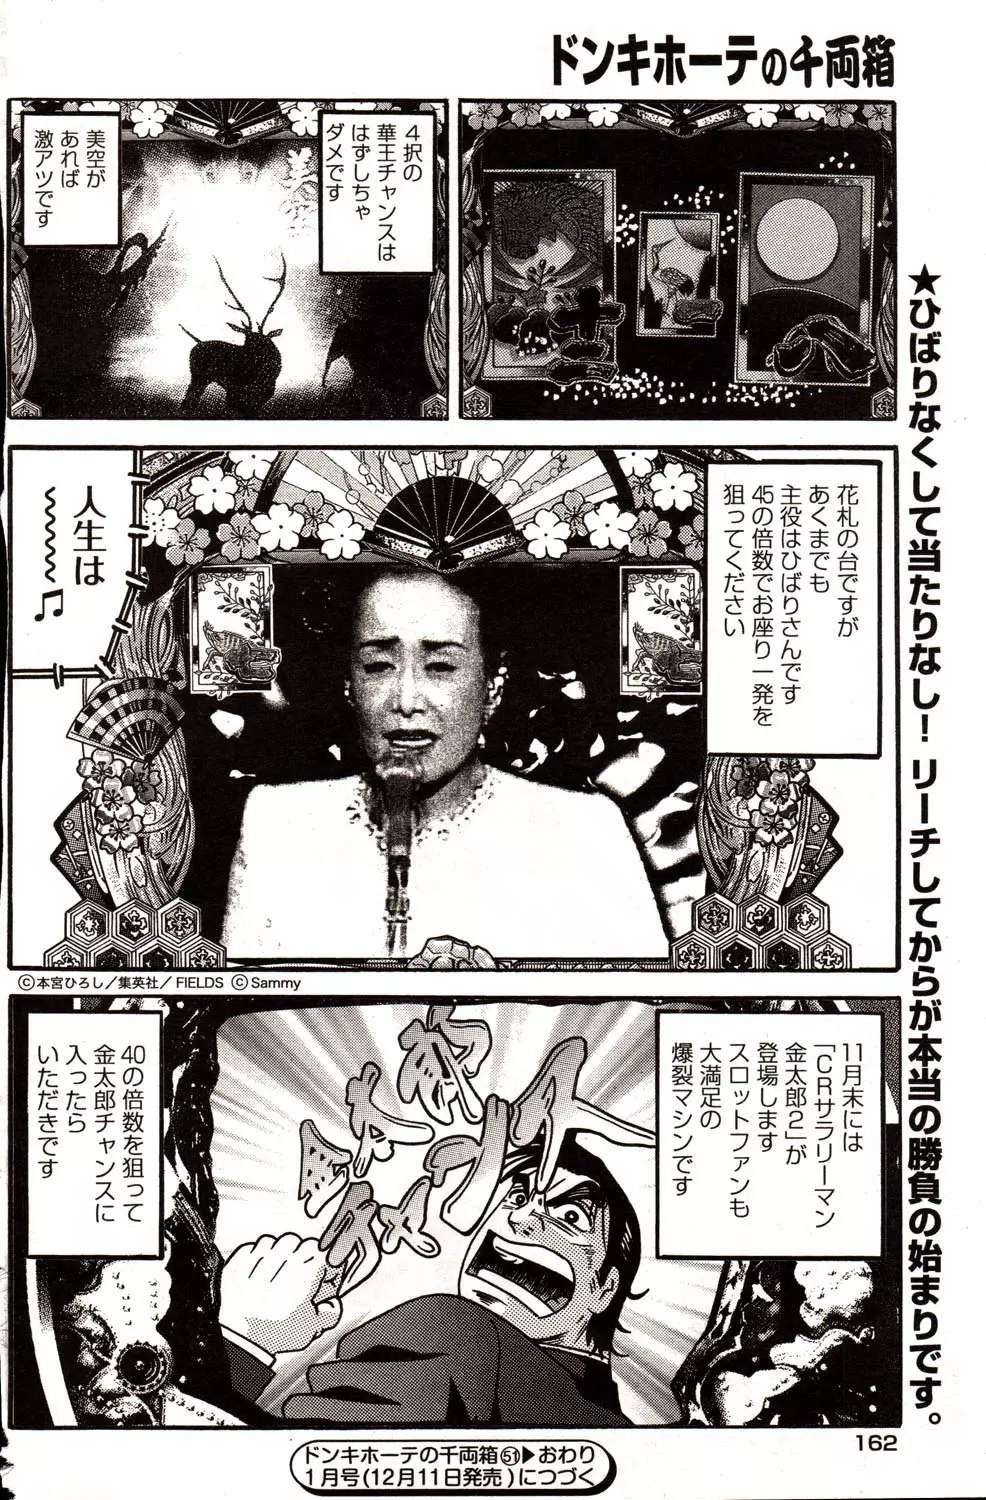 ドンキホーテの千両箱
4択の
華王チャンスは
はずしちゃ
ダメです
美空が
あれば
激アツです
花札の台ですが
あくまでも
主役はひばりさんです
45の倍数でお座り一発を
狙ってください
人生は
〜〜〜〜♫
©本宮ひろし／集英社／FIELDS ©Sammy
11月末には
「CRサラリーマン
金太郎2」が
登場します
スロットファンも
大満足の
爆裂マシンです
40の倍数を狙って
金太郎チャンスに
入ったら
いただきです
★ひばりなくして当たりなし！リーチしてからが本当の勝負の始まりです。
162
ドンキホーテの千両箱51▶おわり
1月号(12月11日発売)につづく